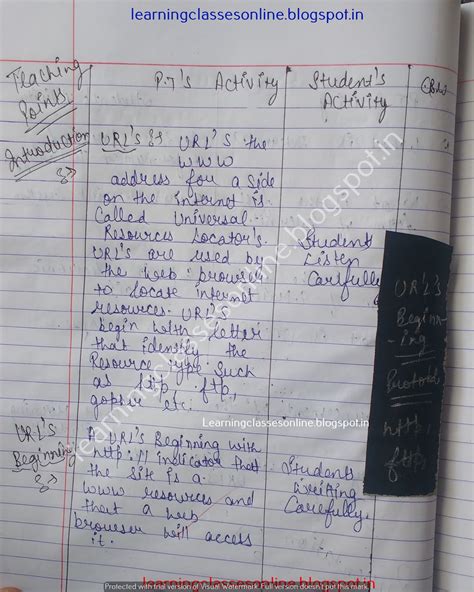 learningclassesonline.blogspot.in
Teaching Points
P.T's Activity
Student's Activity
Introduction
URL'S :- URL'S the
www
address for a side
on the internet is
Called Universal
Resources Locator's
URL's are used by
the web browser
to locate internet
resources. URL's
begin with letter
that identify the
Resource type such
as http, ftp,
gopher etc.
Students
Listen
Carefully
URL'S
Beginn-
-ing
Protocol
http,
ftp
Learningclassesonline.blogspot.in
URL's
Beginning
A URL's Beginning with
http:// indicator that
the site is a
www resources and
that a web
browser will access
it.
Students
Writing
Carefully.
learningclassesonline.blogspot.in
Protected with trial version of Visual Watermark. Full version doesn't put this mark.
learningclassesonline.blogspot.in